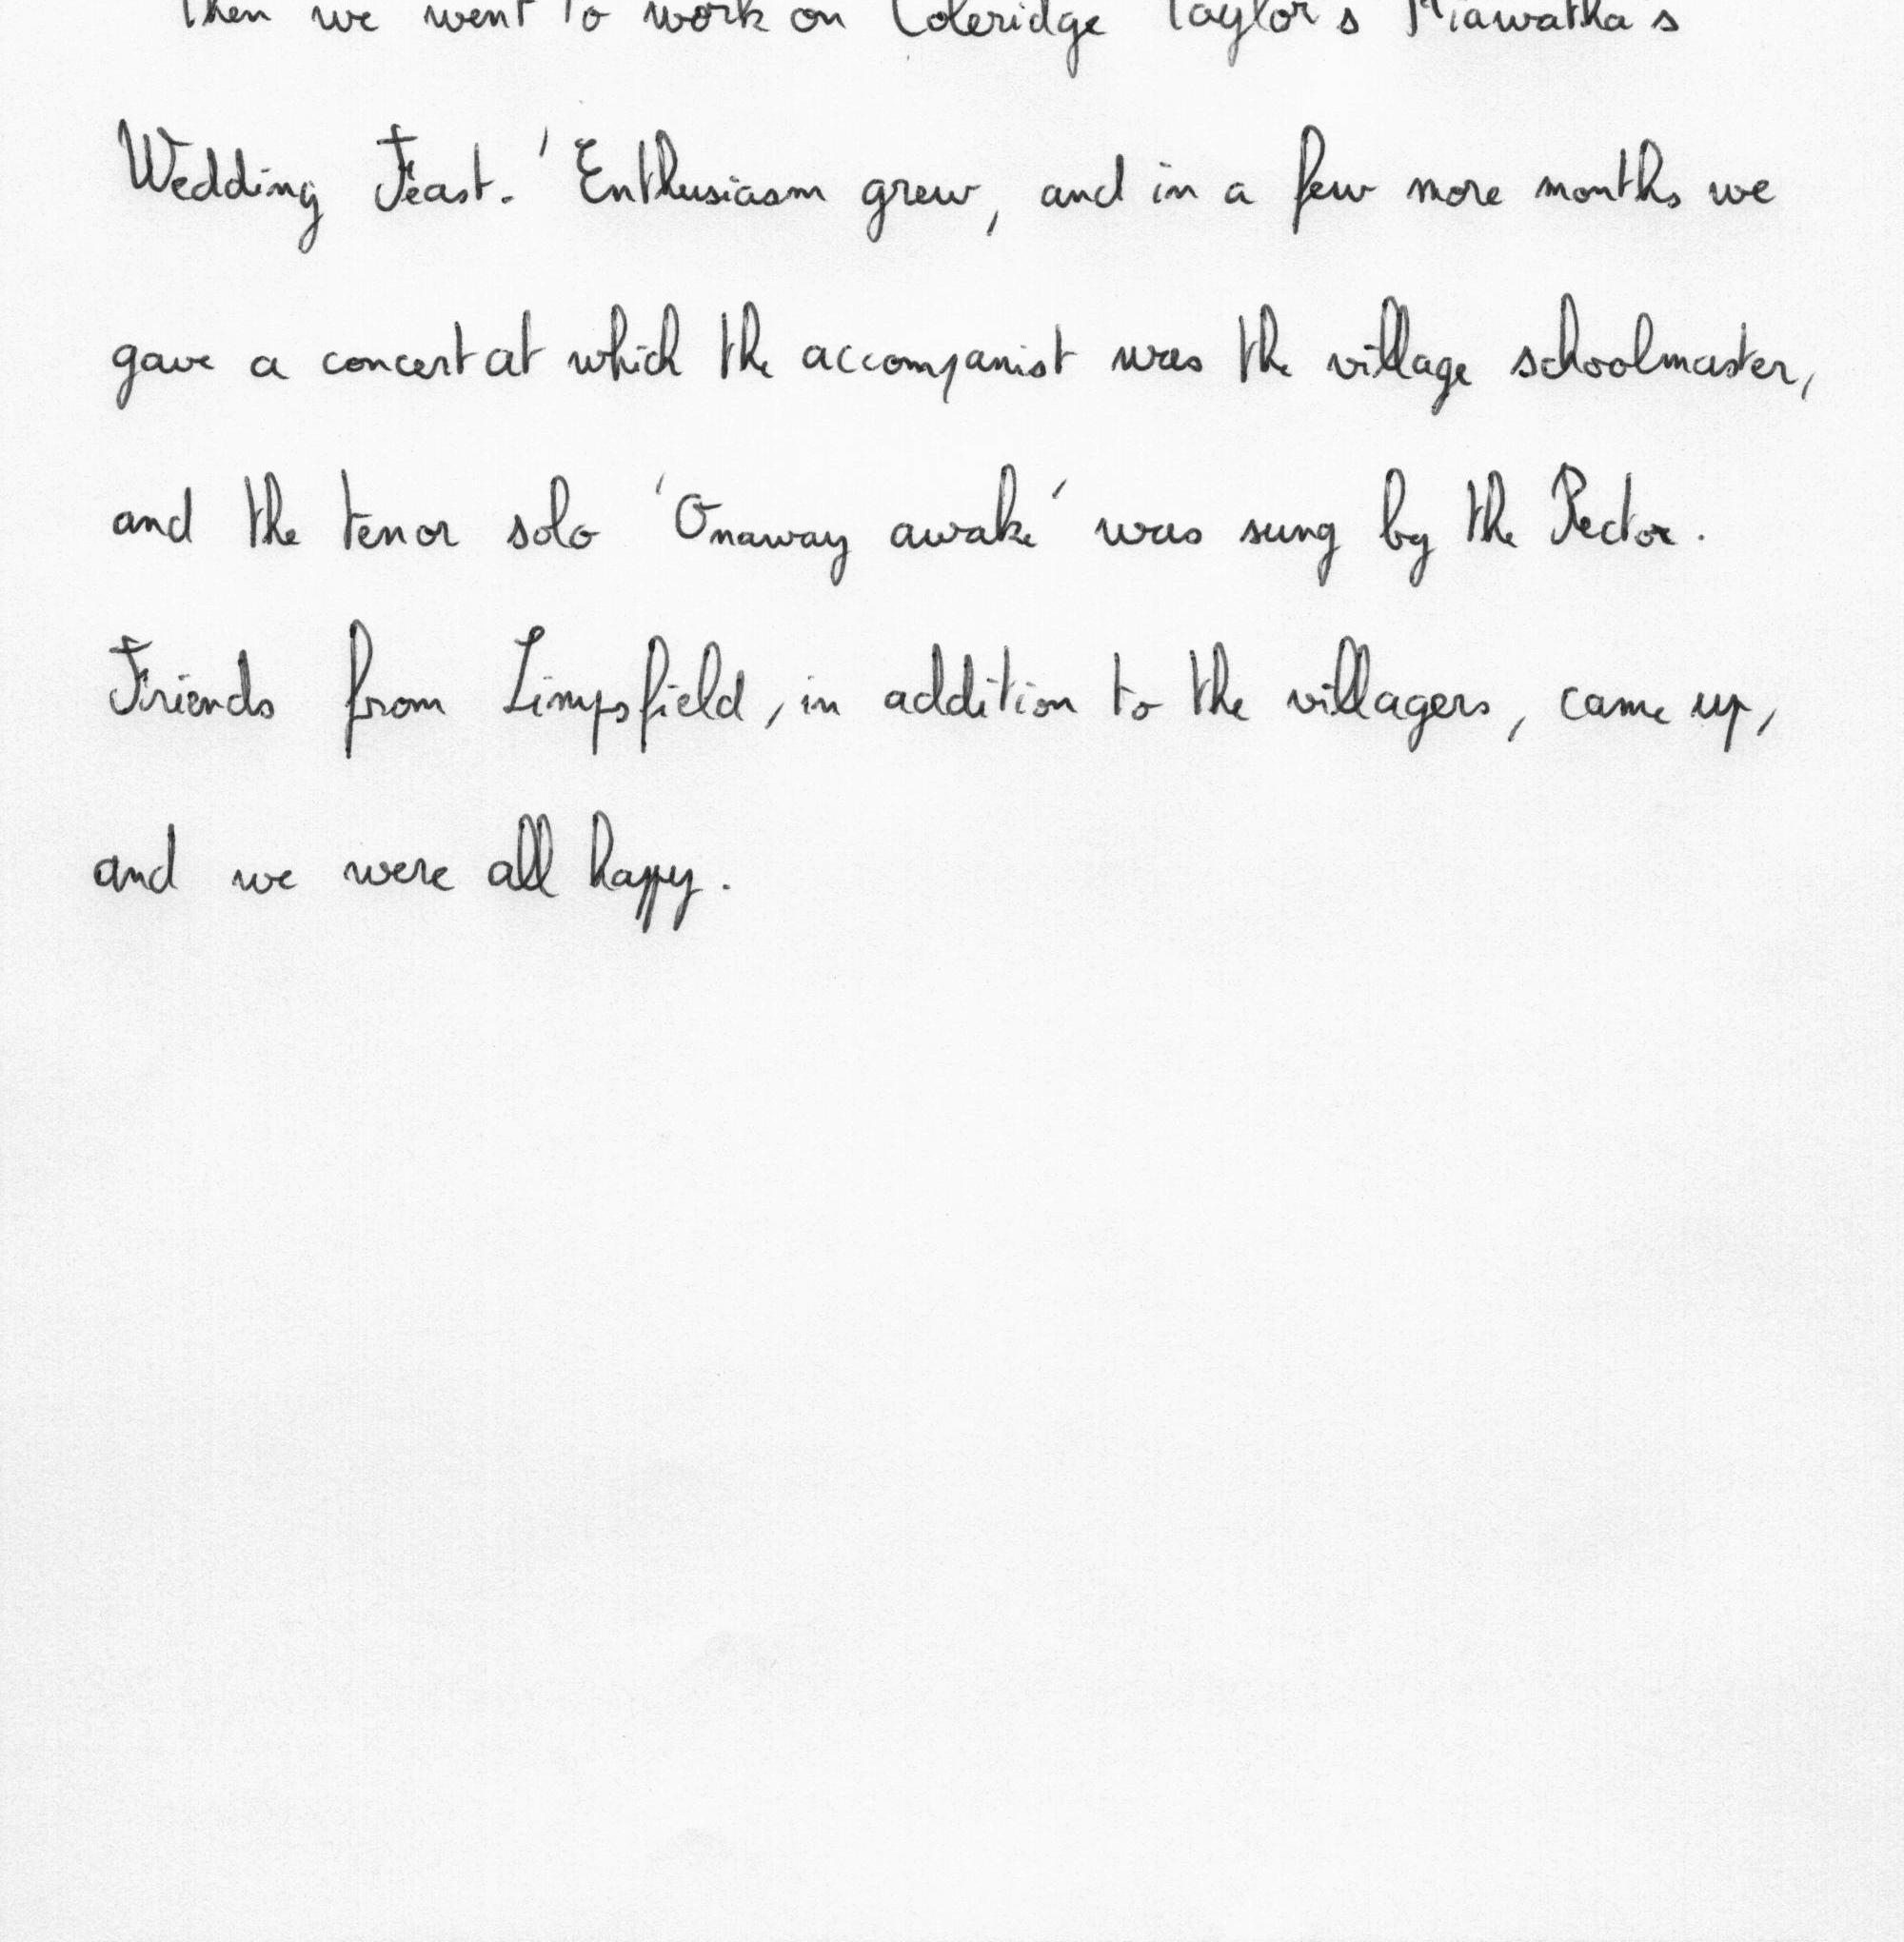 Then we went to work on Coleridge Taylor's Hiawatha's
Wedding Feast.' Enthusiasm grew, and in a few more months we
gave a concert at which the accompanist was the village schoolmaster,
and the tenor solo 'Onaway awake' was sung by the Rector.
Friends from Limpsfield, in addition to the villagers, came up,
and we were all happy.